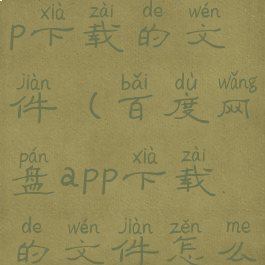 xià zài de wén
p下载的文
jiàn bǎi dù wǎng
件（百度网
pán xià zài
盘app下载
de wén jiàn zěn me
的文件怎么